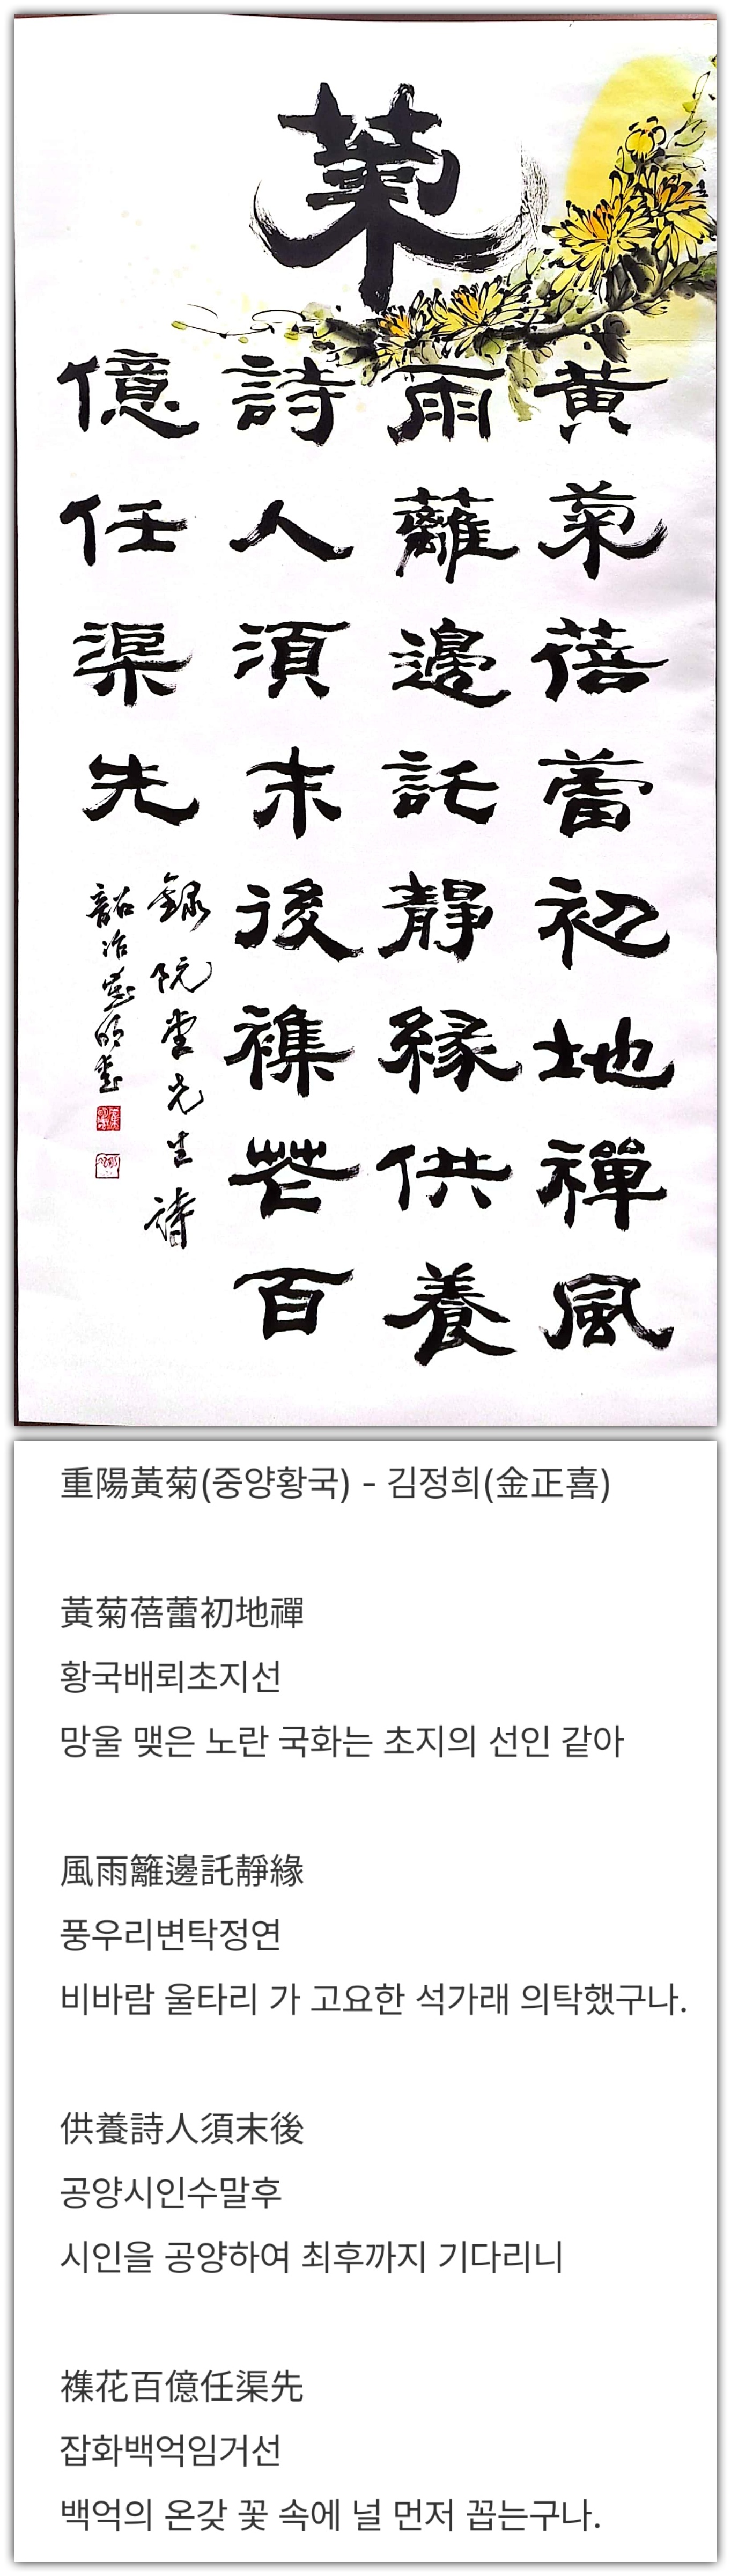 菊
黄菊蓓蕾初地禪風
雨蘺邊託静緣供養
詩人須末後襍花百
億任渠先
錄阮堂先生詩
重陽黃菊(중양황국) - 김정희(金正喜)
黃菊蓓蕾初地禪
황국배뢰초지선
망울 맺은 노란 국화는 초지의 선인 같아
風雨籬邊託靜緣
풍우리변탁정연
비바람 울타리 가 고요한 석가래 의탁했구나.
供養詩人須末後
공양시인수말후
시인을 공양하여 최후까지 기다리니
襍花百億任渠先
잡화백억임거선
백억의 온갖 꽃 속에 널 먼저 꼽는구나.